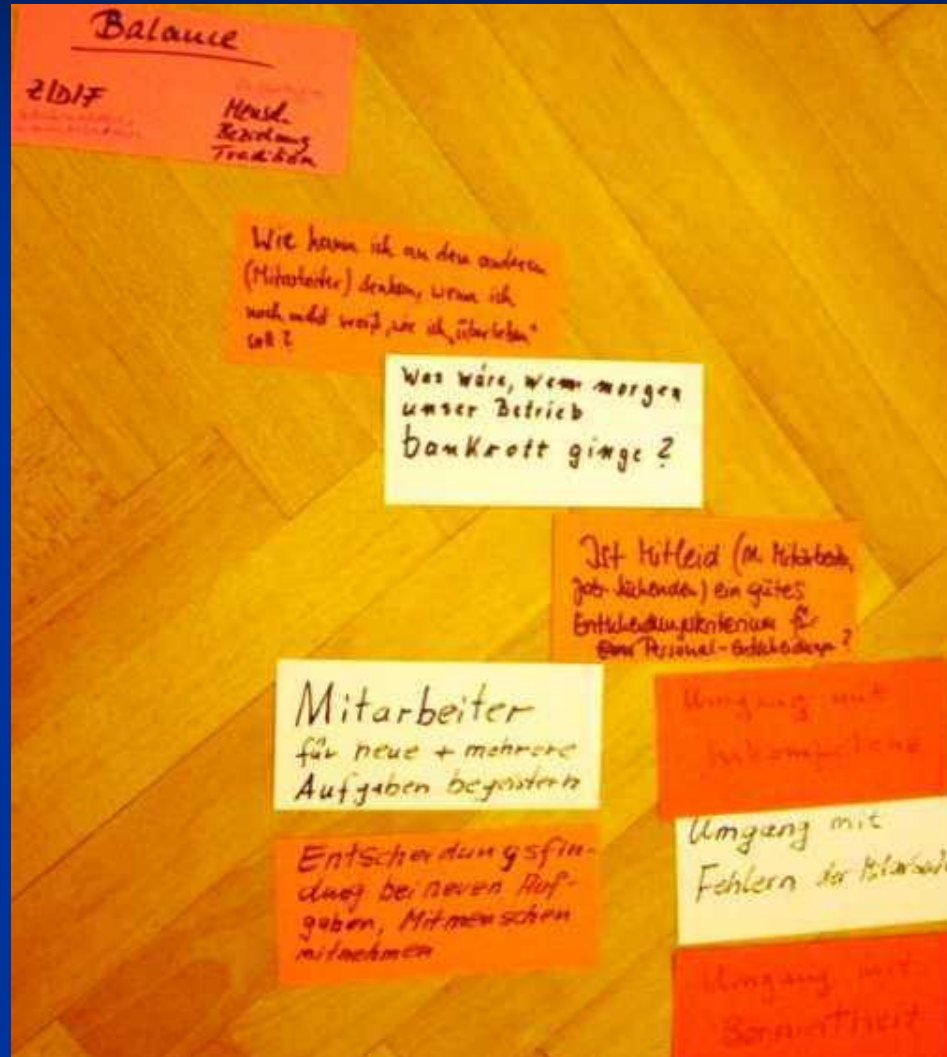 Balance
Z/D/F
Mensch
Beziehung
Tradition
Wie kann ich an den anderen
(Mitarbeiter) denken, wenn ich
noch nicht weiß, wie ich „überleben“
soll?
Was wäre, wenn morgen
unser Betrieb
bankrott ginge?
Ist Mitleid (m. Mitarbeitern,
Job-suchenden) ein gutes
Entscheidungskriterium für
Personal-entscheidungen?
Mitarbeiter
für neue + mehrere
Aufgaben begeistern
Entscheidungsfin-
dung bei neuen Auf-
gaben, Mitmenschen
mitnehmen
Umgang mit
Inkompetenz
Umgang mit
Fehlern der Mitarbeit
Umgang mit